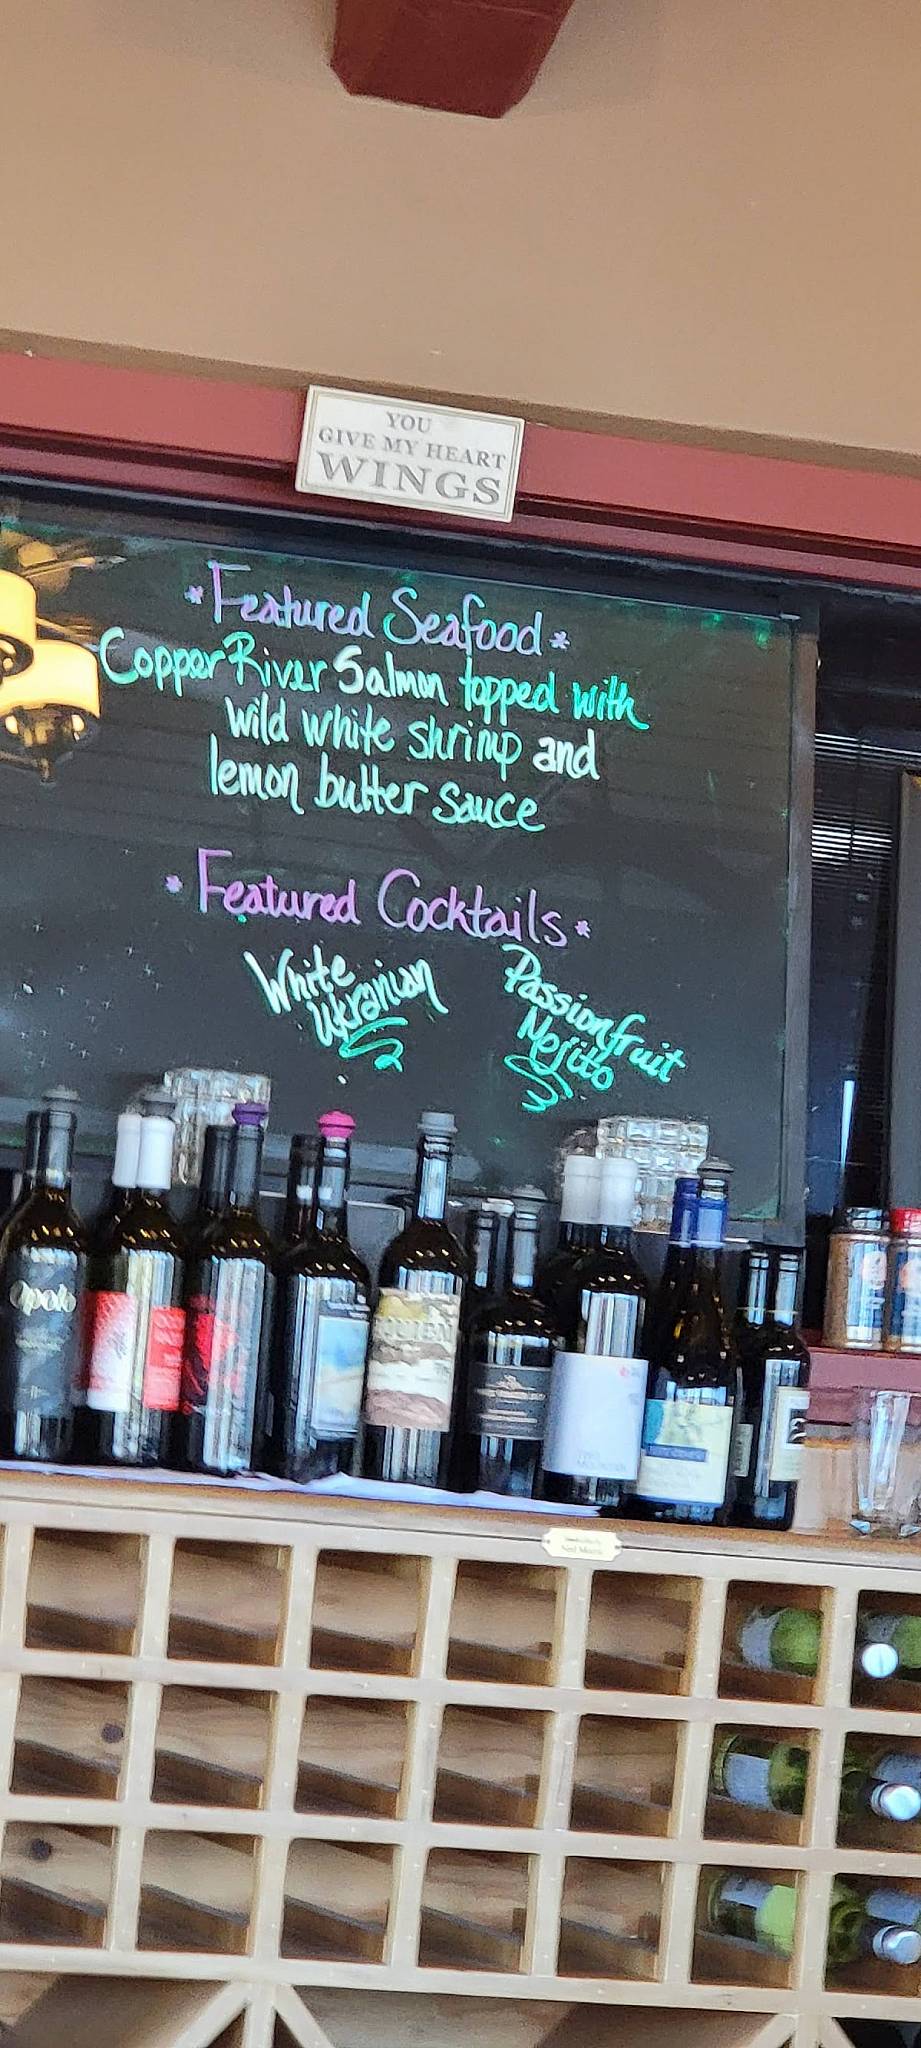 YOU
GIVE MY HEART
WINGS
*Featured Seafood*
Copper River Salmon topped with
wild white shrimp and
lemon butter sauce
*Featured Cocktails*
White
Ukranian
Passionfruit
Mojito
Apolo